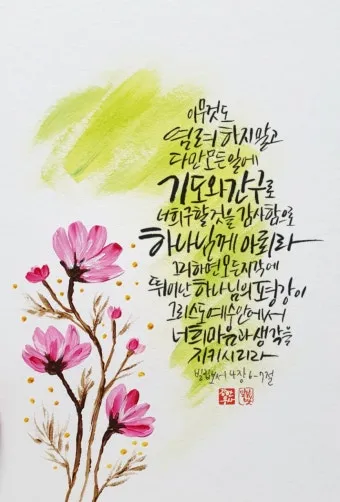 아무것도
염려하지말고
다만모든일에
기도와간구로
너희구할것을감사함으로
하나님께아뢰라
그리하면모든지각에
뛰어난하나님의평강이
그리스도예수안에서
너희마음과생각을
지키시리라
빌립보서 4장 6-7절